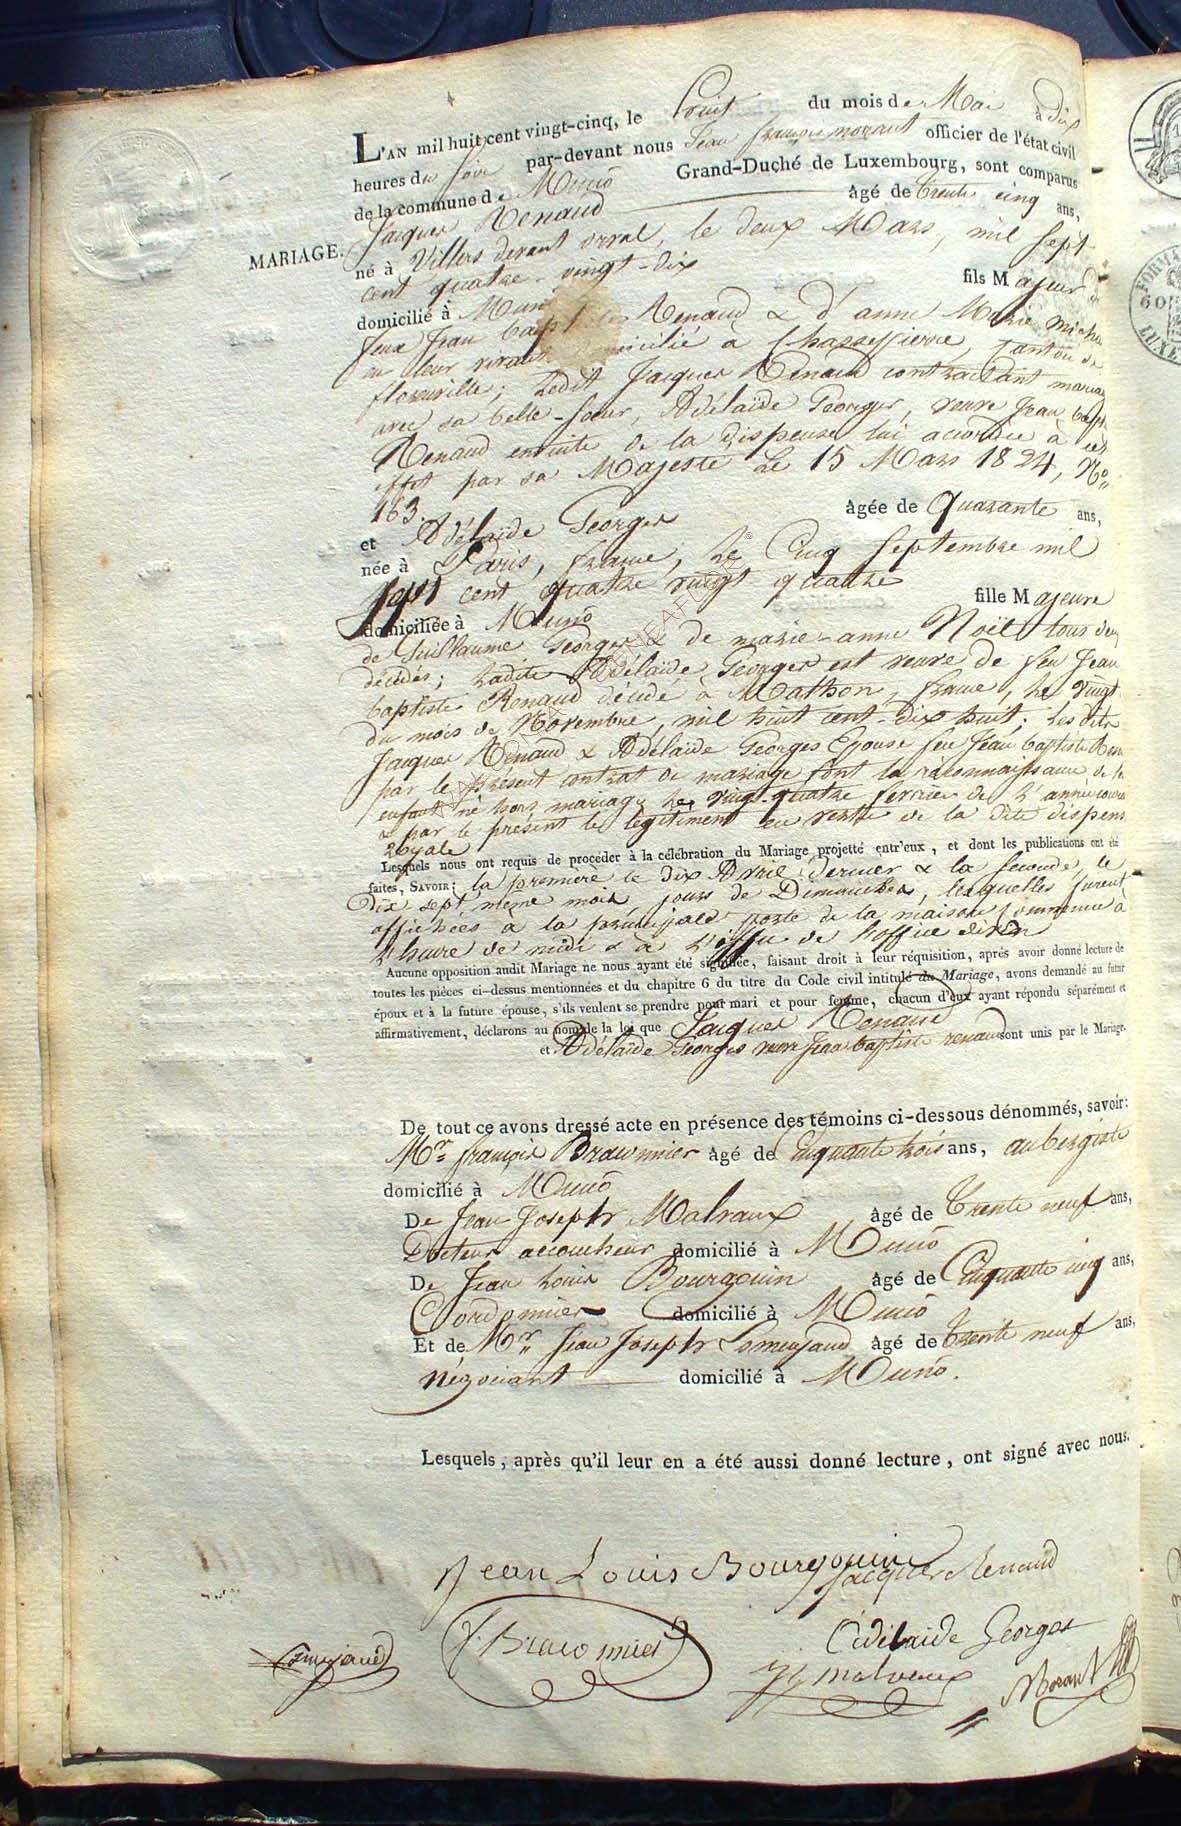 L'AN mil huit cent vingt-cinq, le huit du mois de Mai à dix
heures du soir par-devant nous Jean françois morant officier de l'état civil
de la commune de Muno Grand-Duché de Luxembourg, sont comparus
Jacques Renaud âgé de trente cinq ans,
MARIAGE.
né à Villers devant orval, le deux Mars, mil sept
cent quatre-vingt-dix
domicilié à Muno fils Majeur de
feux Jean baptiste Renaud & d'anne Marie
en leur vivant domicilié à Chassepierre, Canton de
florenville; Ledit Jacques Renaud contractant mariage
avec sa belle-soeur, Adélaïde Georges, veuve Jean bapt
Renaud ensuite de la dispense lui accordée à cet
effet par sa Majesté Le 15 Mars 1824, No
163.
et Adélaïde Georges âgée de Quarante ans,
née à Paris, france, Le Cinq Septembre mil
sept cent quatre vingt quatre
domiciliée à Muno fille Majeure
de Guillaume Georges & de marie-anne Noël tous deux
décédés; Ladite Adélaïde Georges est veuve de feu Jean
baptiste Renaud décédé à Mathon, france, Le vingt
du mois de Novembre, mil huit cent-dix huit; Les dits
Jacques Renaud & Adélaïde Georges Epouse feu Jean baptiste Ren
par le présent contrat de mariage font la reconnaissance de
enfant né hors mariage Le vingt-quatre fevrier de L'année
& par le présent le légitiment en vertu de la dite dispens
Royale
Lesquels nous ont requis de procéder à la célébration du Mariage projetté entr'eux, et dont les publications ont été
faites, SAVOIR: la première le dix Avril dernier & la seconde, le
Dix sept même mois, jours de Dimanches, lesquelles furent
affichées à la principale porte de la maison Commune à
L'heure de midi & à L'issue de l'office divin
Aucune opposition audit Mariage ne nous ayant été signifiée, faisant droit à leur réquisition, après avoir donné lecture de
toutes les pièces ci-dessus mentionnées et du chapitre 6 du titre du Code civil intitulé du Mariage, avons demandé au futur
époux et à la future épouse, s'ils veulent se prendre pour mari et pour femme, chacun d'eux ayant répondu séparément et
affirmativement, déclarons au nom de la loi que Jacques Renaud
et Adélaïde Georges veuve Jean baptiste renaud sont unis par le Mariage.
De tout ce avons dressé acte en présence des témoins ci-dessous dénommés, savoir:
Mr françois Braconnier âgé de Cinquante trois ans, aubergiste
domicilié à Muno
De Jean Joseph Malvaux âgé de Trente neuf ans,
Docteur accoucheur domicilié à Muno
De Jean Louis Bourgouin âgé de Cinquante cinq ans,
Cordonnier domicilié à Muno
Et de Mr Jean Joseph âgé de Trente neuf ans,
Négociant domicilié à Muno.
Lesquels, après qu'il leur en a été aussi donné lecture, ont signé avec nous.
Jean Louis Bourgouin
Jacques Renaud
Adélaide Georges
Braconnier
malvaux
Morant